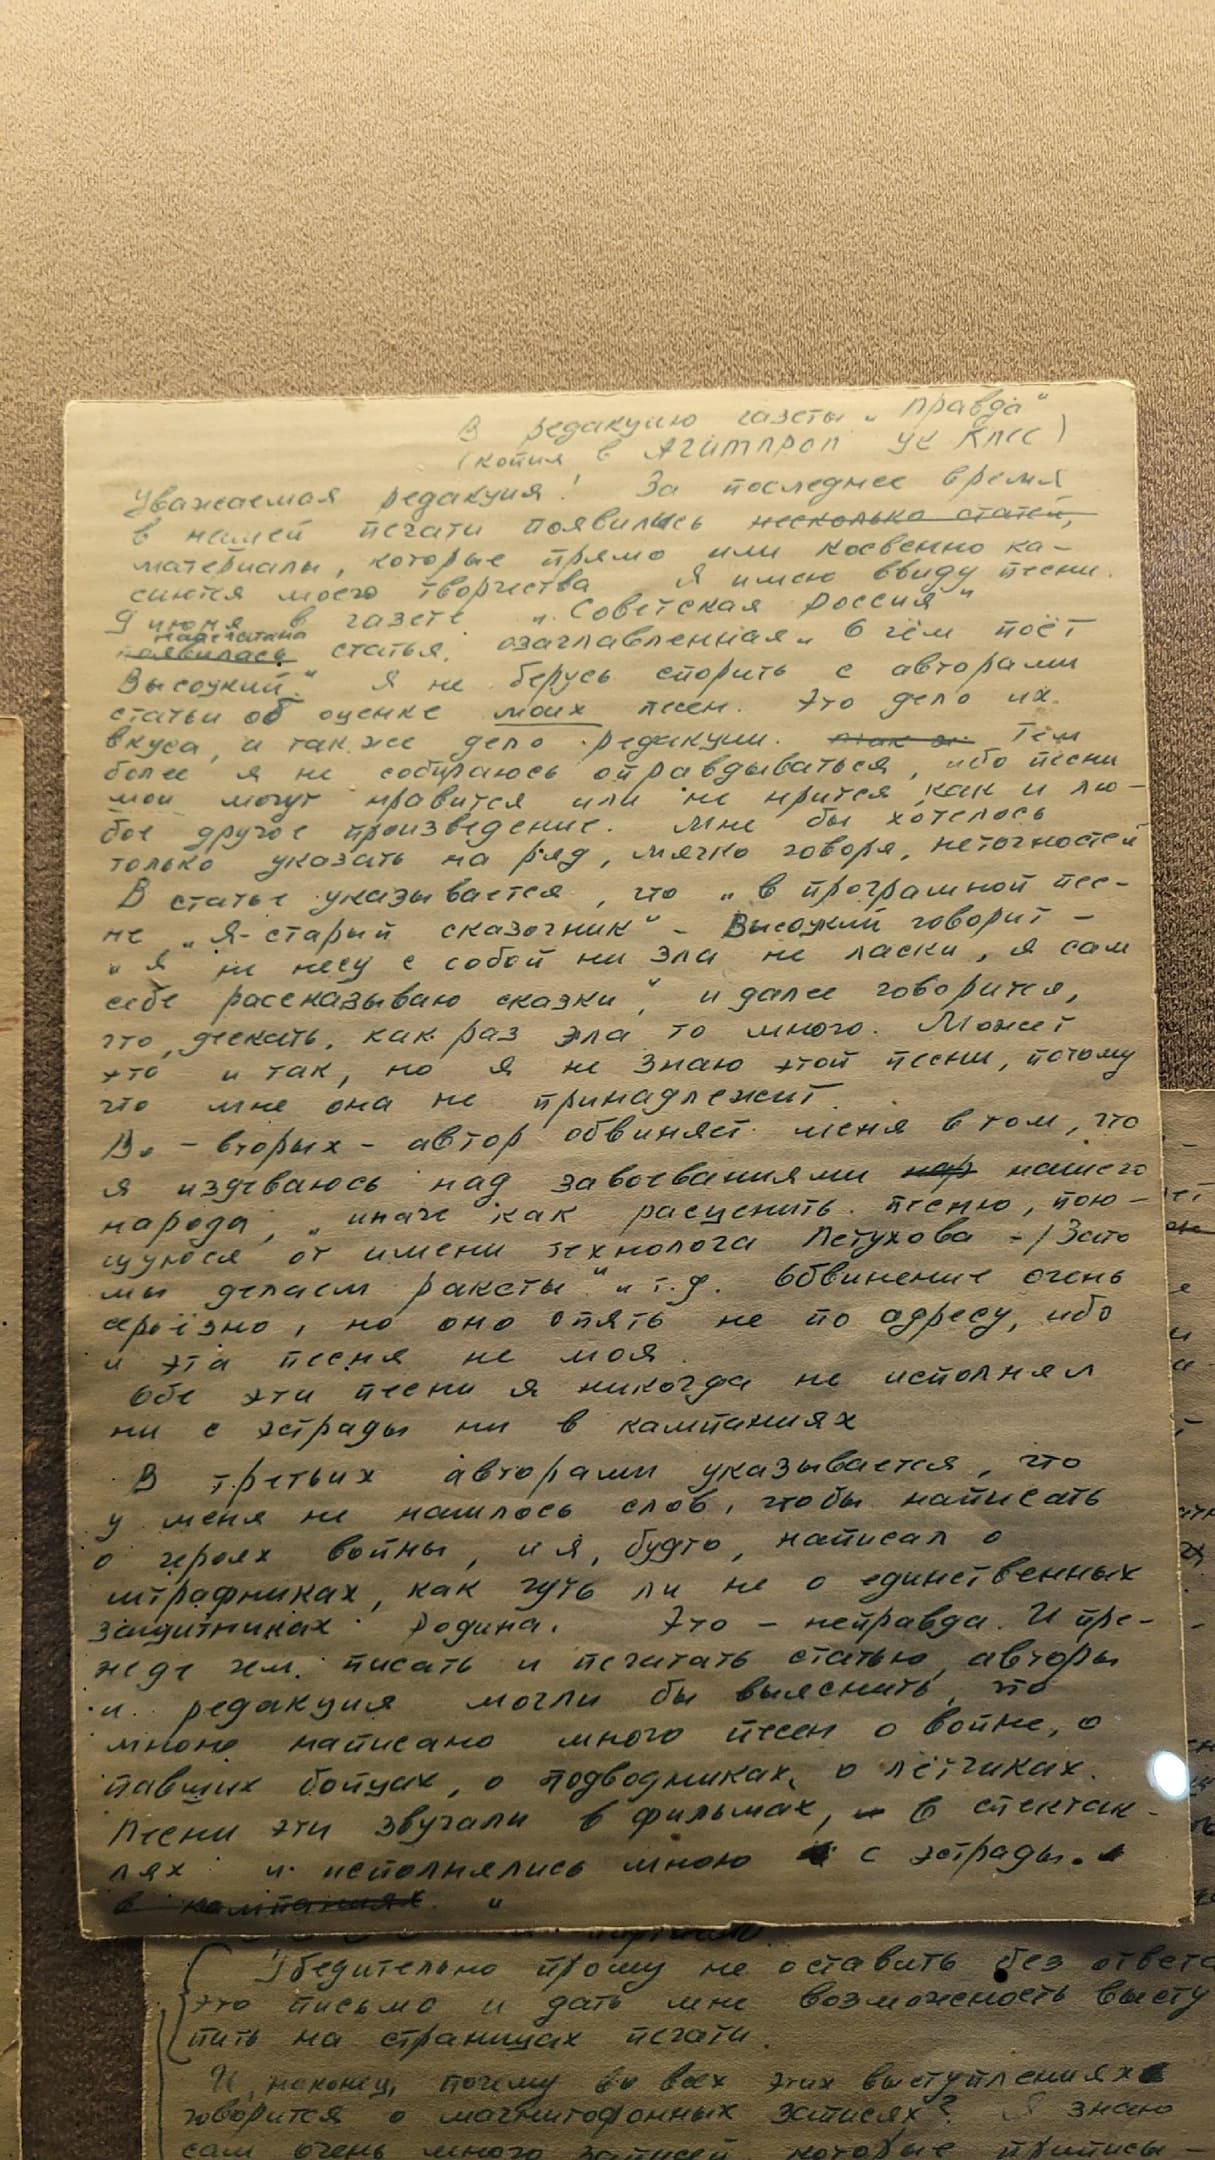 В редакцию газеты „Правда"
(копия в Агитпроп ЦК КПСС)
Уважаемая редакция! За последнее время
в нашей печати появились несколько статей,
материалы, которые прямо или косвенно ка-
саются моего творчества Я имею ввиду песни.
9 июня в газете „Советская Россия"
напечатана
появилась статья, озаглавленная „О чём поёт
Высоцкий". Я не берусь спорить с авторами
статьи об оценке моих песен. Это дело их
вкуса, а так же дело редакции. Тем
более я не собираюсь оправдываться, ибо песни
мои могут нравится или не нрится, как и лю-
бое другое произведение. Мне бы хотелось
только указать на ряд, мягко говоря, неточностей
В статье указывается, что „в програмной пес-
не „Я-старый сказочник" - Высоцкий говорит -
„Я не несу с собой ни зла не ласки, я сам
себе рассказываю сказки", и далее говорится,
что, дескать, как раз зла то много. Может
это и так, но я не знаю этой песни, потому
что мне она не принадлежит.
Во - вторых - автор обвиняет меня в том, что
я издеваюсь над завоеваниями нар нашего
народа, „иначе как расценить песню, пою-
щуюся от имени технолога Петухова - / Зато
мы делаем ракеты" и т.д. Обвинение очень
серьёзно, но оно опять не по адресу, ибо
и эта песня не моя.
Обе эти песни я никогда не исполнял
ни с эстрады ни в кампаниях
В третьих авторами указывается, что
у меня не нашлось слов, чтобы написать
о героях войны, и я, будто, написал о
штрафниках, как чуть ли не о единственных
защитниках Родина. Это - неправда. И пре-
жде чем писать и печатать статью, авторы
и редакция могли бы выяснить, что
мною написано много песен о войне, о
павших бойцах, о подводниках, о лётчиках.
Песни эти звучали в фильмах, и в спектак-
лях и исполнялись мною с эстрады.
в кампаниях. "
Убедительно прошу не оставить без ответа
это письмо и дать мне возможность высту
пить на страницах печати.
И, наконец, почему во всех этих выступлениях
говорится о магнитофонных записях? Я знаю
сам очень много записей, которые приписы-